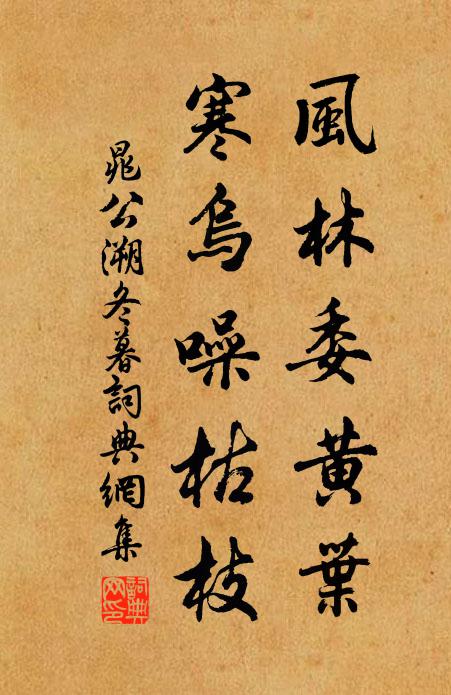 風林委黄葉
寒烏噪枯枝
晁公溯冬暮詞典網集
詞典網印